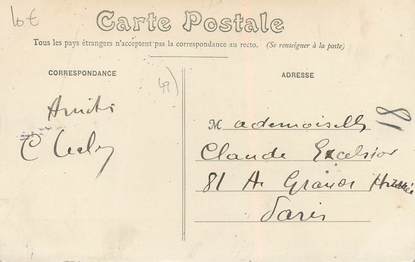 10€
Carte Postale
Tous les pays étrangers n'acceptent pas la correspondance au recto. (Se renseigner à la poste)
CORRESPONDANCE
ADRESSE
Mademoiselle
Claude Excelsior
81 Av Grande Armée
Paris
18